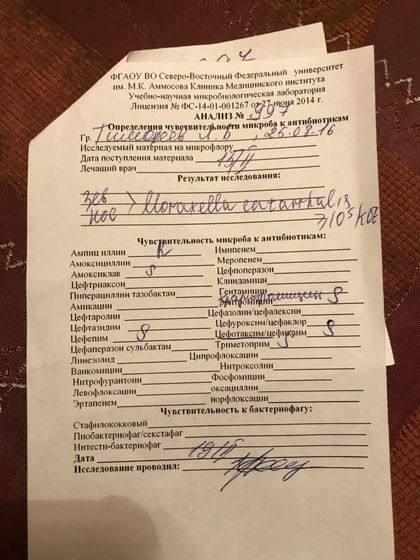 ФГАОУ ВО Северо-Восточный Федеральный университет
им. М.К. Аммосова Клиника Медицинского института
Учебно-научная микробиологическая лаборатория
Лицензия № ФС-14-01-001267 от 27 июня 2014 г.
АНАЛИЗ № 997
Определения чувствительности микроба к антибиотикам
Гр. Тимофеев 25.08.16
Исследуемый материал на микрофлору
Дата поступления материала 15/II
Лечащий врач
Результат исследования:
Зев
нос > Moraxella catarrhalis
≥10⁵ КОЕ
Чувствительность микроба к антибиотикам:
Ампициллин R Имипенем
Амоксициллин Меропенем
Амоксиклав S Цефпоперазон
Цефтриаксон Клиндамицин
Пиперациллин тазобактам Гентамицин
Амикацин S
Цефтаролин Цефазолин/цефалексин
Цефтазидим Цефуроксим/цефаклор
Цефепим S Цефотаксим/цефиксим S
Цефаперазон сульбактам Триметоприм S
Линезолид Ципрофлоксацин
Ванкомицин Нитроксолин
Нитрофурантоин Фосфомицин
Левофлоксацин оксациллин
Эртапенем норфлоксацин
Чувствительность к бактериофагу:
Стафилококковый
Пиобактериофаг/секстафаг
Интести-бактериофаг
Дата 19/II
Исследование проводил: